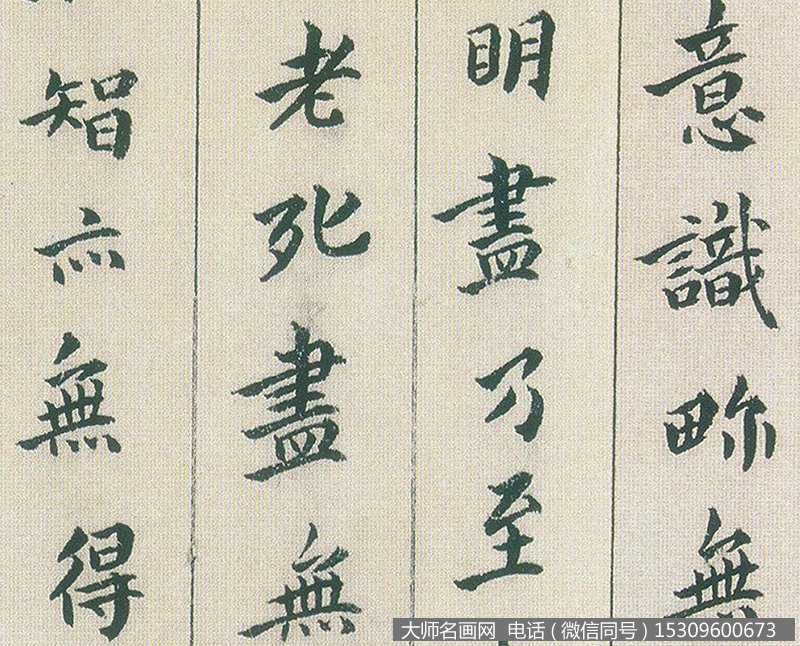 意識眎無
明盡乃至
老死盡無
智亦無得
大师名画网 电话（微信同号）15309600673